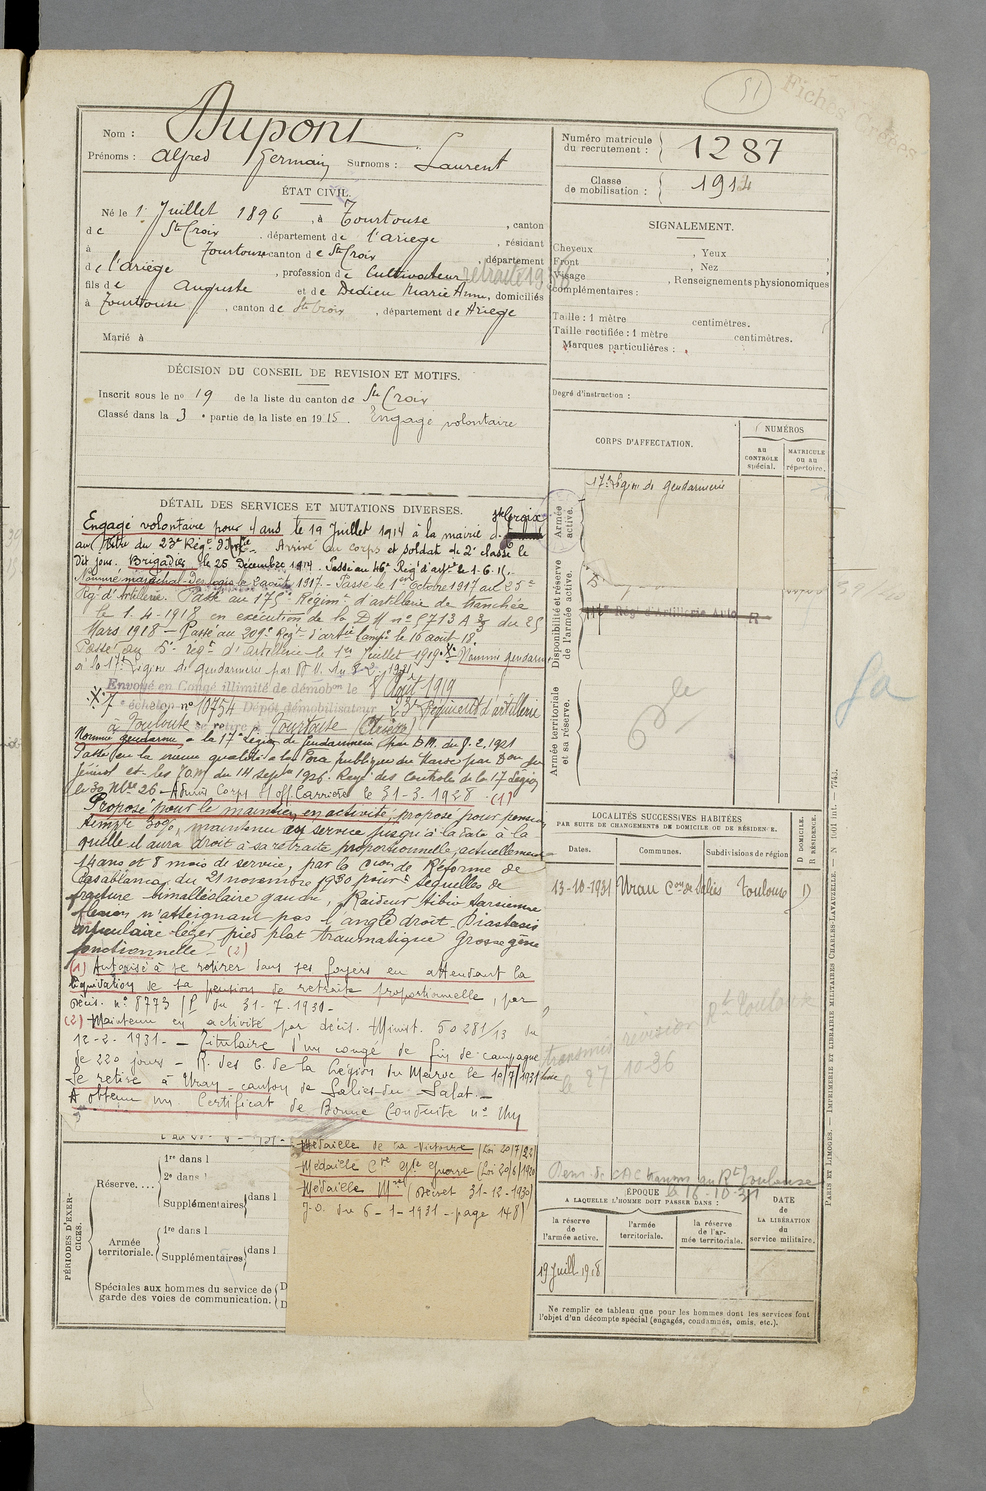 51
Fiches Créées
Nom : Dupont
Prénoms : Alfred Germain Surnoms : Laurent
ÉTAT CIVIL.
Né le 1r Juillet 1896, à Tourtouse, canton
de Ste Croix, département de l'ariège, résidant
à Tourtouse canton de Ste Croix, département
de l'ariège, profession de Cultivateur retraité 19
fils de Auguste et de Dedieu Marie Anne, domiciliés
à Tourtouse, canton de Ste Croix, département de Ariège
Marié à
DÉCISION DU CONSEIL DE REVISION ET MOTIFS.
Inscrit sous le no 19 de la liste du canton de Ste Croix
Classé dans la 3e partie de la liste en 1915. Engagé volontaire
Numéro matricule du recrutement : 1287
Classe de mobilisation : 1914
SIGNALEMENT.
Cheveux , Yeux
Front , Nez
Visage , Renseignements physionomiques
complémentaires :
Taille : 1 mètre centimètres.
Taille rectifiée : 1 mètre centimètres.
Marques particulières :
Degré d'instruction :
CORPS D'AFFECTATION.
NUMÉROS
au CONTRÔLE spécial.
MATRICULE ou au répertoire.
Armée active.
17e Légion de gendarmerie
Disponibilité et réserve de l'armée active.
Armée territoriale et sa réserve.
DÉTAIL DES SERVICES ET MUTATIONS DIVERSES.
Engagé volontaire pour 4 ans le 19 Juillet 1914 à la mairie de Ste Croix
au titre du 23e Rég. d'Artie. Arrivé au corps et soldat de 2e classe le
dit jour. Brigadier le 25 Décembre 1914. Passé au 46e Rég. d'artie le 1-6-15.
Nommé maréchal-des-logis le 2 août 1917 - Passé le 1er octobre 1917 au 25e
Rég. d'Artillerie. Passé au 175e Régimt d'artillerie de tranchée
le 1.4.1918 en exécution de la DM no 5713 A 3/3 du 25
Mars 1918 - Passé au 209e Régt d'artie campe le 16 août 18.
Passé au 5e régt d'artillerie le 1er Juillet 1919. X Nommé gendarme
à la 17e Légion de gendarmerie par D.M. du 8-2-1921
Envoyé en Congé illimité de démobon le 8 Août 1919
X 7e échelon no 10754 Dépôt démobilisateur 23e Régiment d'artillerie
à Toulouse se retire à Tourtouse (Ariège)
Nommé gendarme à la 17e Légion de Gendarmerie par D.M. du 8.2.1921
Passé en la même qualité à la Force publique du Maroc par
et les T.O.M. du 14 septbre 1926. Rayé des Contrôles de la 17 Légion
le 30 9bre 26 - Admis Corps S/off. Carrière le 31-3-1928 - (1)
Proposé pour le maintien en activité, proposé pour pension
temp̄re 30%, maintenu en service jusqu'à la date à la
quelle il aura droit à sa retraite proportionnelle, actuellement
14 ans et 8 mois de service, par la Cion de Réforme de
Casablanca du 21 novembre 1930 pour : séquelles de
fracture bimalléolaire gauche, Raideur tibio tarsienne
flexion n'atteignant pas l'angle droit. Diastasis
articulaire léger pied plat traumatique. Grosse gêne
fonctionnelle - (2)
(1) Autorisé à se retirer dans ses foyers en attendant la
liquidation de sa pension de retraite proportionnelle, par
décis. no 8773 /P du 31-7-1930 -
(2) Maintenu en activité par décis. Minist. 50281/13 du
12-2-1931 - Titulaire d'un congé de fin de campagne
de 220 jours - R. des C. de la Légion du Maroc le 10/7/1931
Se retire à Urau - canton de Salies-du-Salat -
A obtenu un Certificat de Bonne Conduite no
Médaille de la Victoire (Loi 20/7/22)
Médaille Cve Gde Guerre (Loi 20/6/1920)
Médaille Mre (Décret 31-12-1930)
J.O. du 6-1-1931 - page 148)
PÉRIODES D'EXERCICES.
Réserve....
1re dans l
2e dans l
Supplémentaires dans l
Armée territoriale.
1re dans l
Supplémentaires dans l
Spéciales aux hommes du service de garde des voies de communication. D
D
LOCALITÉS SUCCESSIVES HABITÉES
PAR SUITE DE CHANGEMENTS DE DOMICILE OU DE RÉSIDENCE.
Dates.
Communes.
Subdivisions de région
D DOMICILE.
R RÉSIDENCE.
13-10-1931 Urau Con de Salies Toulouse D
transmis révision Rt Toulouse
le 27 10-36
au Rt Toulouse
le 16-10-31
ÉPOQUE
A LAQUELLE L'HOMME DOIT PASSER DANS :
la réserve de l'armée active.
l'armée territoriale.
la réserve de l'armée territoriale.
DATE
DE
LA LIBÉRATION
du
service militaire.
19 Juill 1918
Ne remplir ce tableau que pour les hommes dont les services font
l'objet d'un décompte spécial (engagés, condamnés, omis, etc.).
PARIS ET LIMOGES. — IMPRIMERIE ET LIBRAIRIE MILITAIRES CHARLES-LAVAUZELLE.